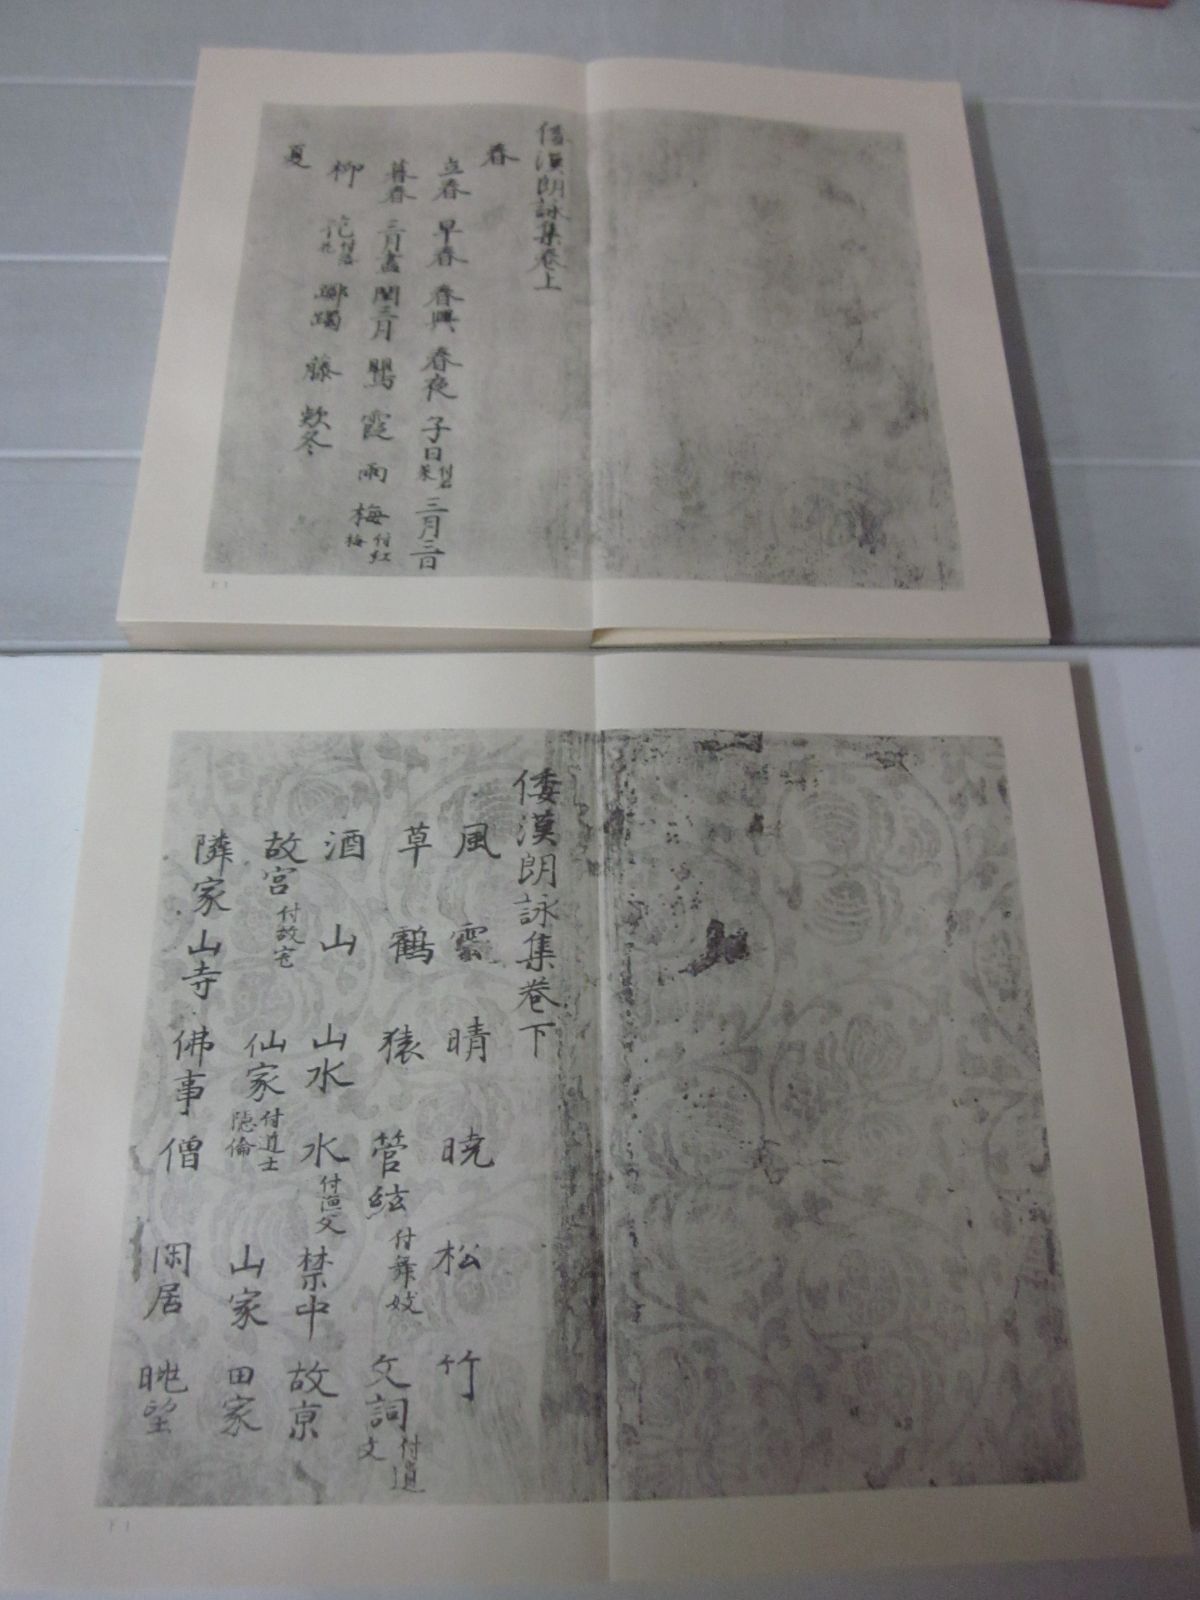 倭漢朗詠集卷上
春
立春 早春 春興 春夜 子日 付若菜 三月三日
暮春 三月盡 閏三月 鸎 霞 雨 梅 付紅梅
柳 花 付落花 躑躅 藤 欵冬
夏
上1
倭漢朗詠集卷下
風 雲 晴 暁 松 竹
草 鶴 猿 管絃 付舞妓 文詞 付遺文
酒 山 山水 水 付漁父 禁中 故京
故宮 付故宅 仙家 付道士隠倫 山家 田家
隣家 山寺 佛事 僧 閑居 眺望
下1